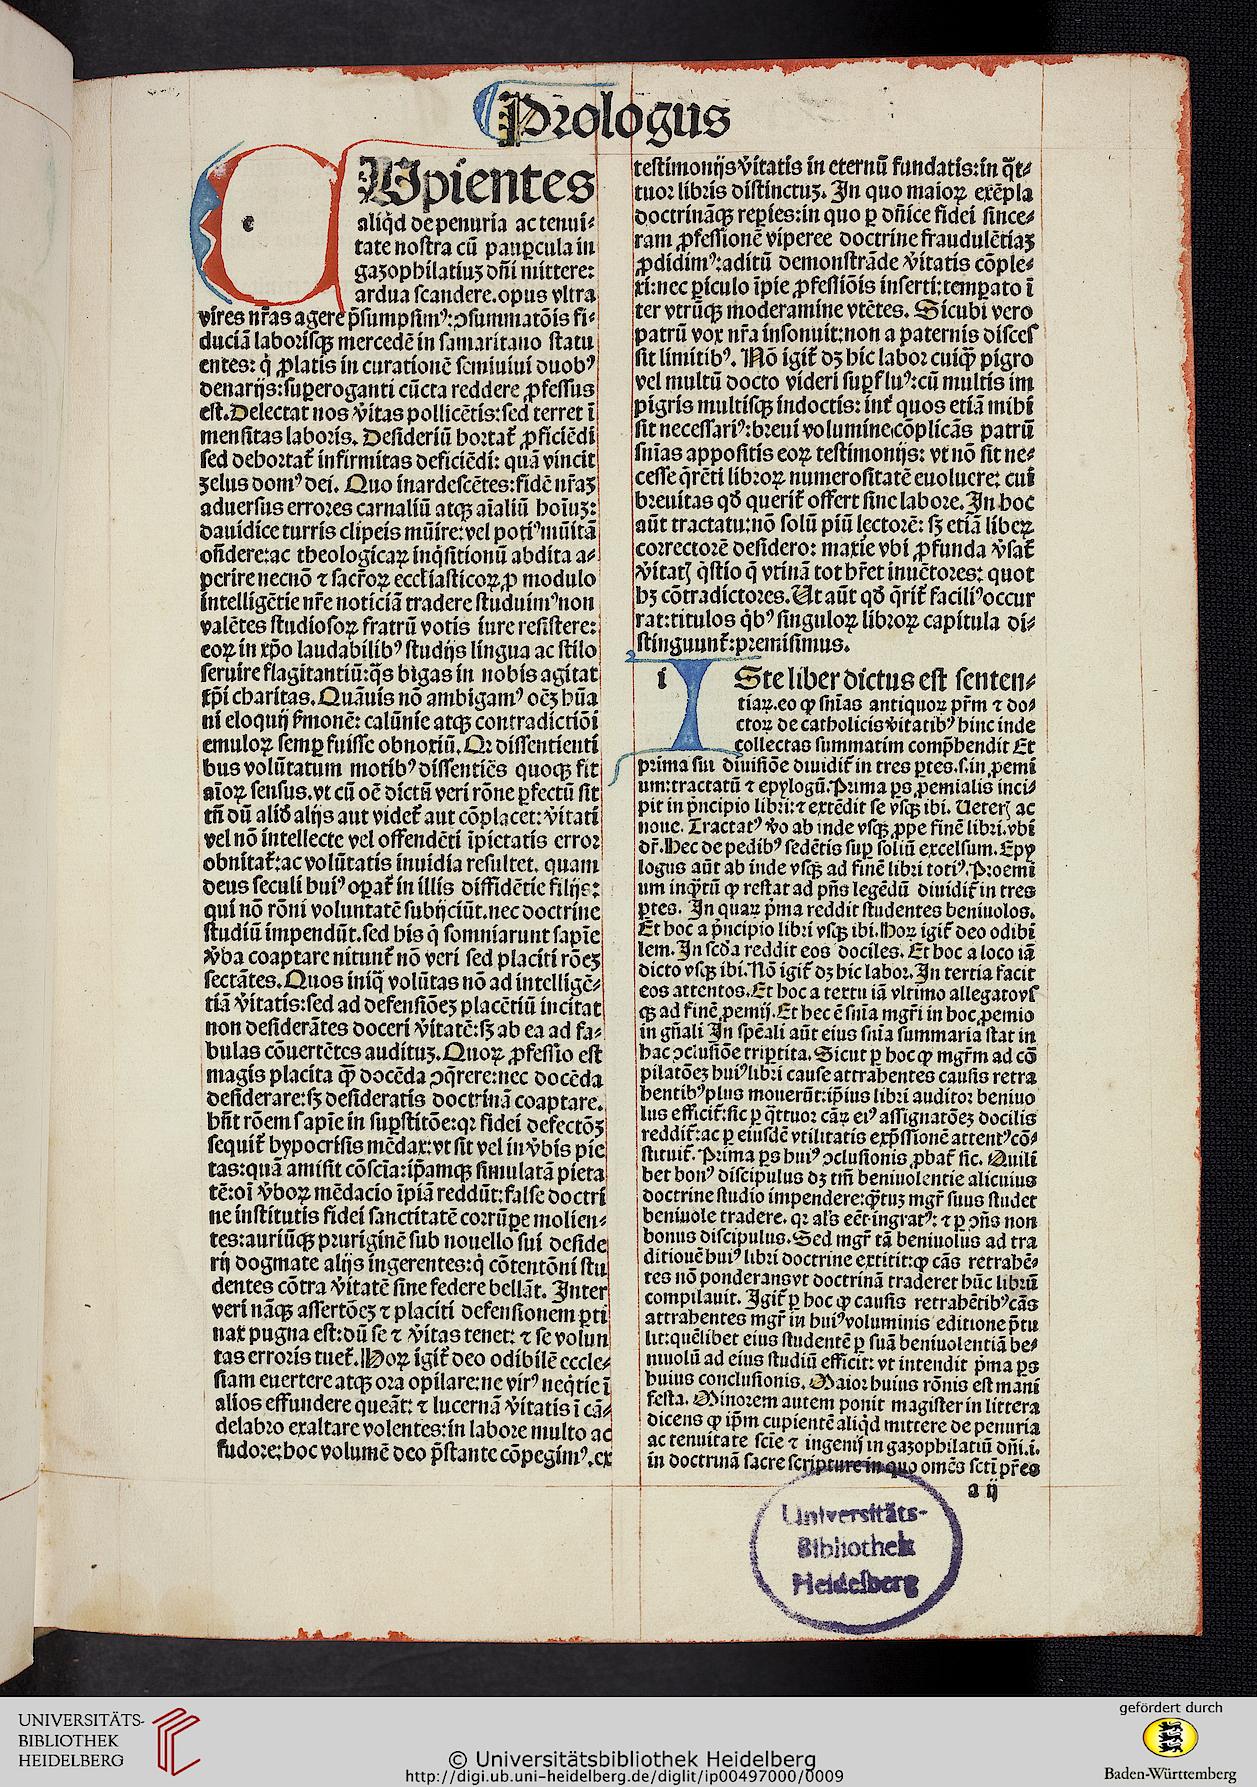 Prologus
CUpientes
aliq̇d de penuria ac tenui⸗
tate nostra cū paupcula in
gazophilatiuz dñi mittere:
ardua scandere. opus vltra
vires nr̄as agere p̄sumpsimꝰ: ꝯsummatōis fi⸗
duciā laborisqꝫ mercedē in samaritano statu
entes: q̇ ꝓlatis in curationē semiuiui duobꝰ
denarijs: suꝑeroganti cūcta reddere ꝓfessus
est. Delectat nos v̇itas pollicētis: sed terret ī
mensitas laboris. Desideriū hortat᷑ ꝓficiēdi
sed dehortat᷑ infirmitas deficiēdi: quā vincit
zelus domꝰ dei. Quo inardescētes: fidē nr̄aꝫ
aduersus errores carnaliū atqꝫ aīaliū hoīuꝫ:
dauidice turris clipeis mūire: vel potiꝰ mūitā
oñdere: ac theologicaꝝ inq̇sitionū abdita a⸗
perire necnō ⁊ sacr̄oꝝ eccl̄iasticoꝝ ꝓ modulo
intelligētie nr̄e noticiā tradere studuimꝰ non
valētes studiosoꝝ fratrū votis iure resistere:
eoꝝ in xp̄o laudabilibꝰ studijs lingua ac stilo
seruire flagitantiū: q̄s bigas in nobis agitat
xp̄i charitas. Quāuis nō ambigamꝰ oēꝫ hūa
ni eloquij s̄monē: calūnie atqꝫ contradictiōi
emuloꝝ semꝑ fuisse obnoxiū. Qꝛ dissentienti
bus volūtatum motibꝰ dissentiēs quoqꝫ fit
aīoꝝ sensus. vt cū oē dictū veri rōne ꝑfectū sit
tn̄ dū aliḋ alijs aut videt᷑ aut cōplacet: v̇itati
vel nō intellecte vel offendēti īpietatis error
obnitat᷑: ac volūtatis inuidia resultet. quam
deus seculi huiꝰ oꝑat᷑ in illis diffidētie filijs:
qui nō rōni voluntatē subijciūt. nec doctrine
studiū impendūt. sed his q̇ somniarunt sapīe
v̇ba coaptare nitunt᷑ nō veri sed placiti rōeꝫ
sectātes. Quos iniq̄ volūtas nō ad intelligē⸗
tiā v̇itatis: sed ad defensiōeꝫ placētiū incitat
non desiderātes doceri v̇itatē: sꝫ ab ea ad fa⸗
bulas cōuertētes audituꝫ. Quoꝝ ꝓfessio est
magis placita qꝫ docēda ꝯq̇rere: nec docēda
desiderare: sꝫ desideratis doctrinā coaptare.
hn̄t rōem sapīe in suꝑstitōe: qꝛ fidei defectōꝫ
sequit᷑ hypocrisis mēdax: vt sit vel in v̇bis pie
tas: quā amisit cōscīa: ip̄amqꝫ simulatā pieta
tē: oī v̇boꝝ mēdacio īpiā reddūt: false doctri
ne institutis fidei sanctitatē corrūpe molien⸗
tes: auriūqꝫ pruriginē sub nouello sui deside
rij dogmate alijs ingerentes: q̇ cōtentōni stu
dentes cōtra v̇itatē sine federe bellāt. Inter
veri nāqꝫ assertōeꝫ ⁊ placiti defensionem ꝑti
nax pugna est: dū se ⁊ v̇itas tenet: ⁊ se volun
tas erroris tuet᷑. Hoꝝ igit᷑ deo odibilē eccle⸗
siam euertere atqꝫ ora opilare: ne virꝰ neq̇tie ī
alios effundere queāt: ⁊ lucernā v̇itatis ī cā⸗
delabro exaltare volentes: in labore multo ac
sudore: hoc volumē deo p̄stante cōpegimꝰ. ex
testimonijs v̇itatis in eternū fundatis: in q̄t⸗
tuor libris distinctuꝫ. In quo maioꝝ exēpla
doctrināqꝫ reperies: in quo ꝑ dn̄ice fidei since⸗
ram ꝓfessionē viperee doctrine fraudulētiaꝫ
ꝓdidimꝰ: aditū demonstrāde v̇itatis cōple⸗
xi: nec ꝑiculo īpie ꝓfessiōis inserti: temꝑato ī
ter vtrūqꝫ moderamine vtētes. Sicubi vero
patrū vox nr̄a insonuit: non a paternis disces
sit limitibꝰ. Nō igit᷑ dꝫ hic labor cuiqꝫ pigro
vel multū docto videri suꝑfluꝰ: cū multis im
pigris multisqꝫ indoctis: int᷑ quos etiā mihi
sit necessariꝰ: breui volumine cōplicās patrū
snīas appositis eoꝝ testimonijs: vt nō sit ne⸗
cesse q̄rēti libroꝝ numerositatē euoluere: cui
breuitas qḋ querit᷑ offert sine labore. In hoc
aūt tractatu: nō solū piū lectorē: sꝫ etiā liberꝝ
correctorē desidero: maxīe vbi ꝓfunda v̇sat᷑
v̇itatꝭ q̄stio q̄ vtinā tot hr̄et inuētores: quot
hꝫ cōtradictores. Ut aūt qḋ q̄rit᷑ faciliꝰ occur
rat: titulos q̇bꝰ singuloꝝ libroꝝ capitula di⸗
stinguunt᷑: premisimus.
ISte liber dictus est senten⸗
tiaꝝ. eo ꝙ snīas antiquoꝝ pr̄m ⁊ do⸗
ctoꝝ de catholicis v̇itatibꝰ hinc inde
collectas summatim comp̄hendit Et
prima sui diuisiōe diuidit᷑ in tres ꝑtes. s. in ꝓemi
um: tractatū ⁊ epylogū. Prima ꝑs ꝓemialis inci⸗
pit in p̄ncipio libri: ⁊ extēdit se vsqꝫ ibi. Ueterꝭ ac
noue. Tractatꝰ v̇o ab inde vsqꝫ ꝓpe finē libri. vbi
dr̄. Hec de pedibꝰ sedētis suꝑ soliū excelsum. Epy
logus aūt ab inde vsqꝫ ad finē libri totiꝰ. Proemi
um inq̄tū ꝙ restat ad pn̄s legēdū diuidit᷑ in tres
ꝑtes. In quaꝝ ṗma reddit studentes beniuolos.
Et hoc a p̄ncipio libri vsqꝫ ibi. Hoꝝ igit᷑ deo odibi
lem. In scḋa reddit eos dociles. Et hoc a loco iā
dicto vsqꝫ ibi. Nō igit᷑ dꝫ hic labor. In tertia facit
eos attentos. Et hoc a textu iā vltimo allegato vs
qꝫ ad finē ꝓemij. Et hec ē snīa mgr̄i in hoc ꝓemio
in gn̄ali In spēali aūt eius snīa summaria stat in
hac ꝯclusiōe triꝑtita. Sicut ꝑ hoc ꝙ mgr̄m ad cō
pilatōeꝫ huiꝰ libri cause attrahentes causis retra
hentibꝰ plus mouerūt: ip̄ius libri auditor beniuo
lus efficit᷑: sic ꝑ q̄ttuor cāꝝ eiꝰ assignatōeꝫ docilis
reddit᷑: ac ꝑ eiusdē vtilitatis exp̄ssionē attentꝰ cō⸗
stituit᷑. Prima ꝑs huiꝰ ꝯclusionis ꝓbat᷑ sic. Quili
bet bonꝰ discipulus dꝫ tm̄ beniuolentie alicuius
doctrine studio impendere: q̄tuꝫ mgr̄ suus studet
beniuole tradere. qꝛ al's eēt ingratꝰ: ⁊ ꝑ ꝯn̄s non
bonus discipulus. Sed mgr̄ tā beniuolus ad tra
ditionē huiꝰ libri doctrine extitit: ꝙ cās retrahē⸗
tes nō ponderans vt doctrinā traderet hūc librū
compilauit. Igit᷑ ꝑ hoc ꝙ causis retrahētibꝰ cās
attrahentes mgr̄ in huiꝰ voluminis editione p̄tu
lit: quēlibet eius studentē ꝑ suā beniuolentiā be⸗
niuolū ad eius studiū efficit: vt intendit ṗma ꝑs
huius conclusionis. Maior huius rōnis est mani
festa. Minorem autem ponit magister in littera
dicens ꝙ ip̄m cupientē aliq̇d mittere de penuria
ac tenuitate scīe ⁊ ingenij in gazophilatiū dn̄i. i.
in doctrinā sacre scripture in quo omēs scti pr̄es
a ij
Universitäts-
Bibliothek
Heidelberg
UNIVERSITÄTS-
BIBLIOTHEK
HEIDELBERG
© Universitätsbibliothek Heidelberg
http://digi.ub.uni-heidelberg.de/diglit/ip00497000/0009
gefördert durch
Baden-Württemberg